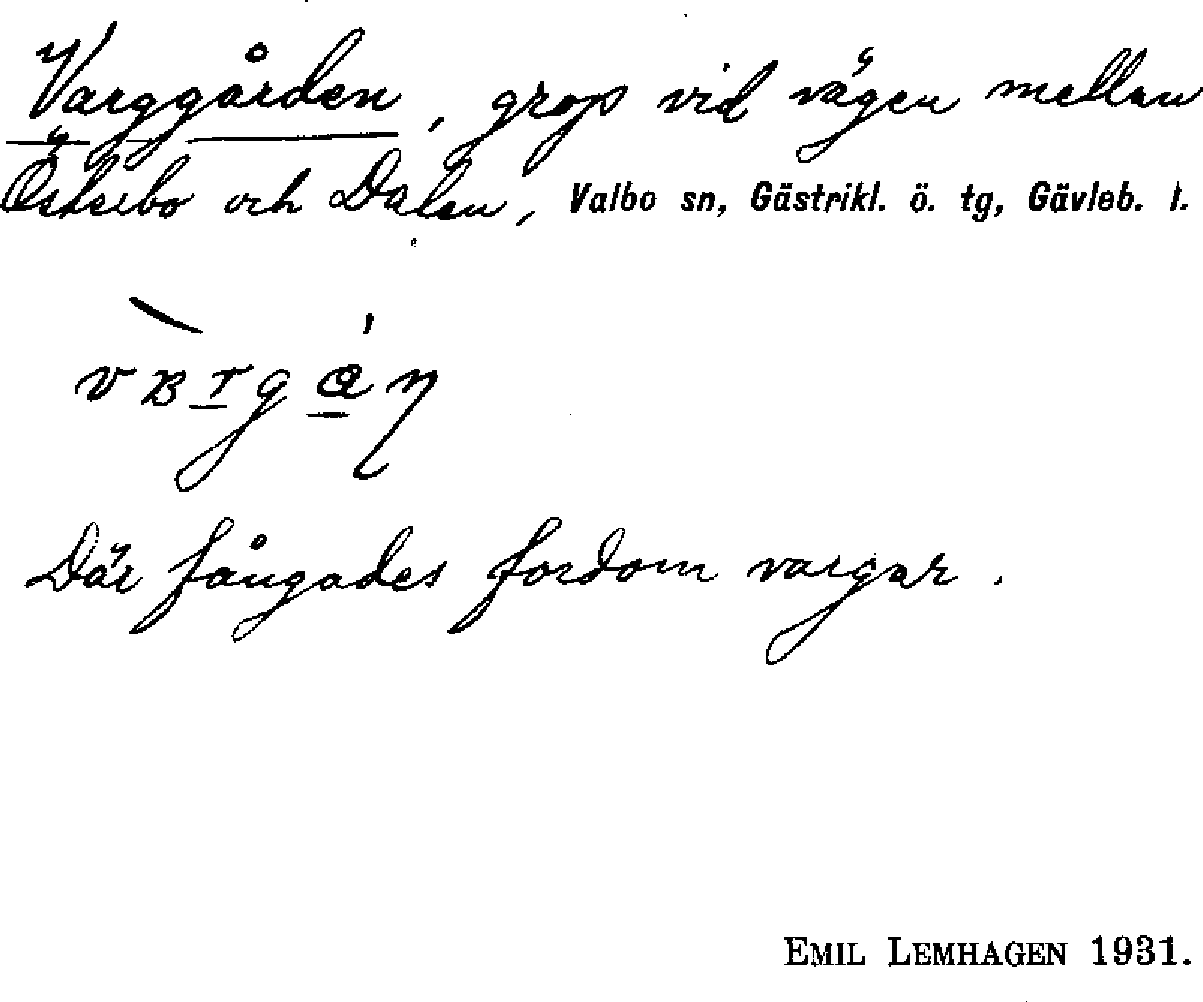 Varggården, grop vid vägen mellan
och Dalen, Valbo sn, Gästrikl. ö. tg, Gävleb. l.
Där fångades fordom vargar.
EMIL LEMHAGEN 1931.